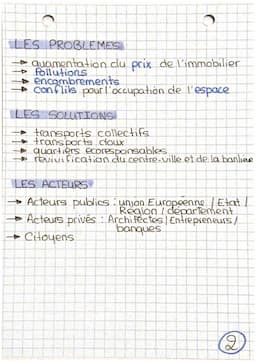 LES PROBLEMES
→ augmentation du prix de l'immobilier
→ Pollutions
→ encombrements
→ conflits pour l'occupation de l'espace
LES SOLUTIONS
→ transports collectifs
→ transports doux
→ quartiers écoresponsables
→ revivification du centre-ville et de la banlieue
LES ACTEURS
→ Acteurs publics : union Européenne / Etat /
Région / département
→ Acteurs privés : Architectes / Entrepreneurs /
banques
→ Citoyens
2